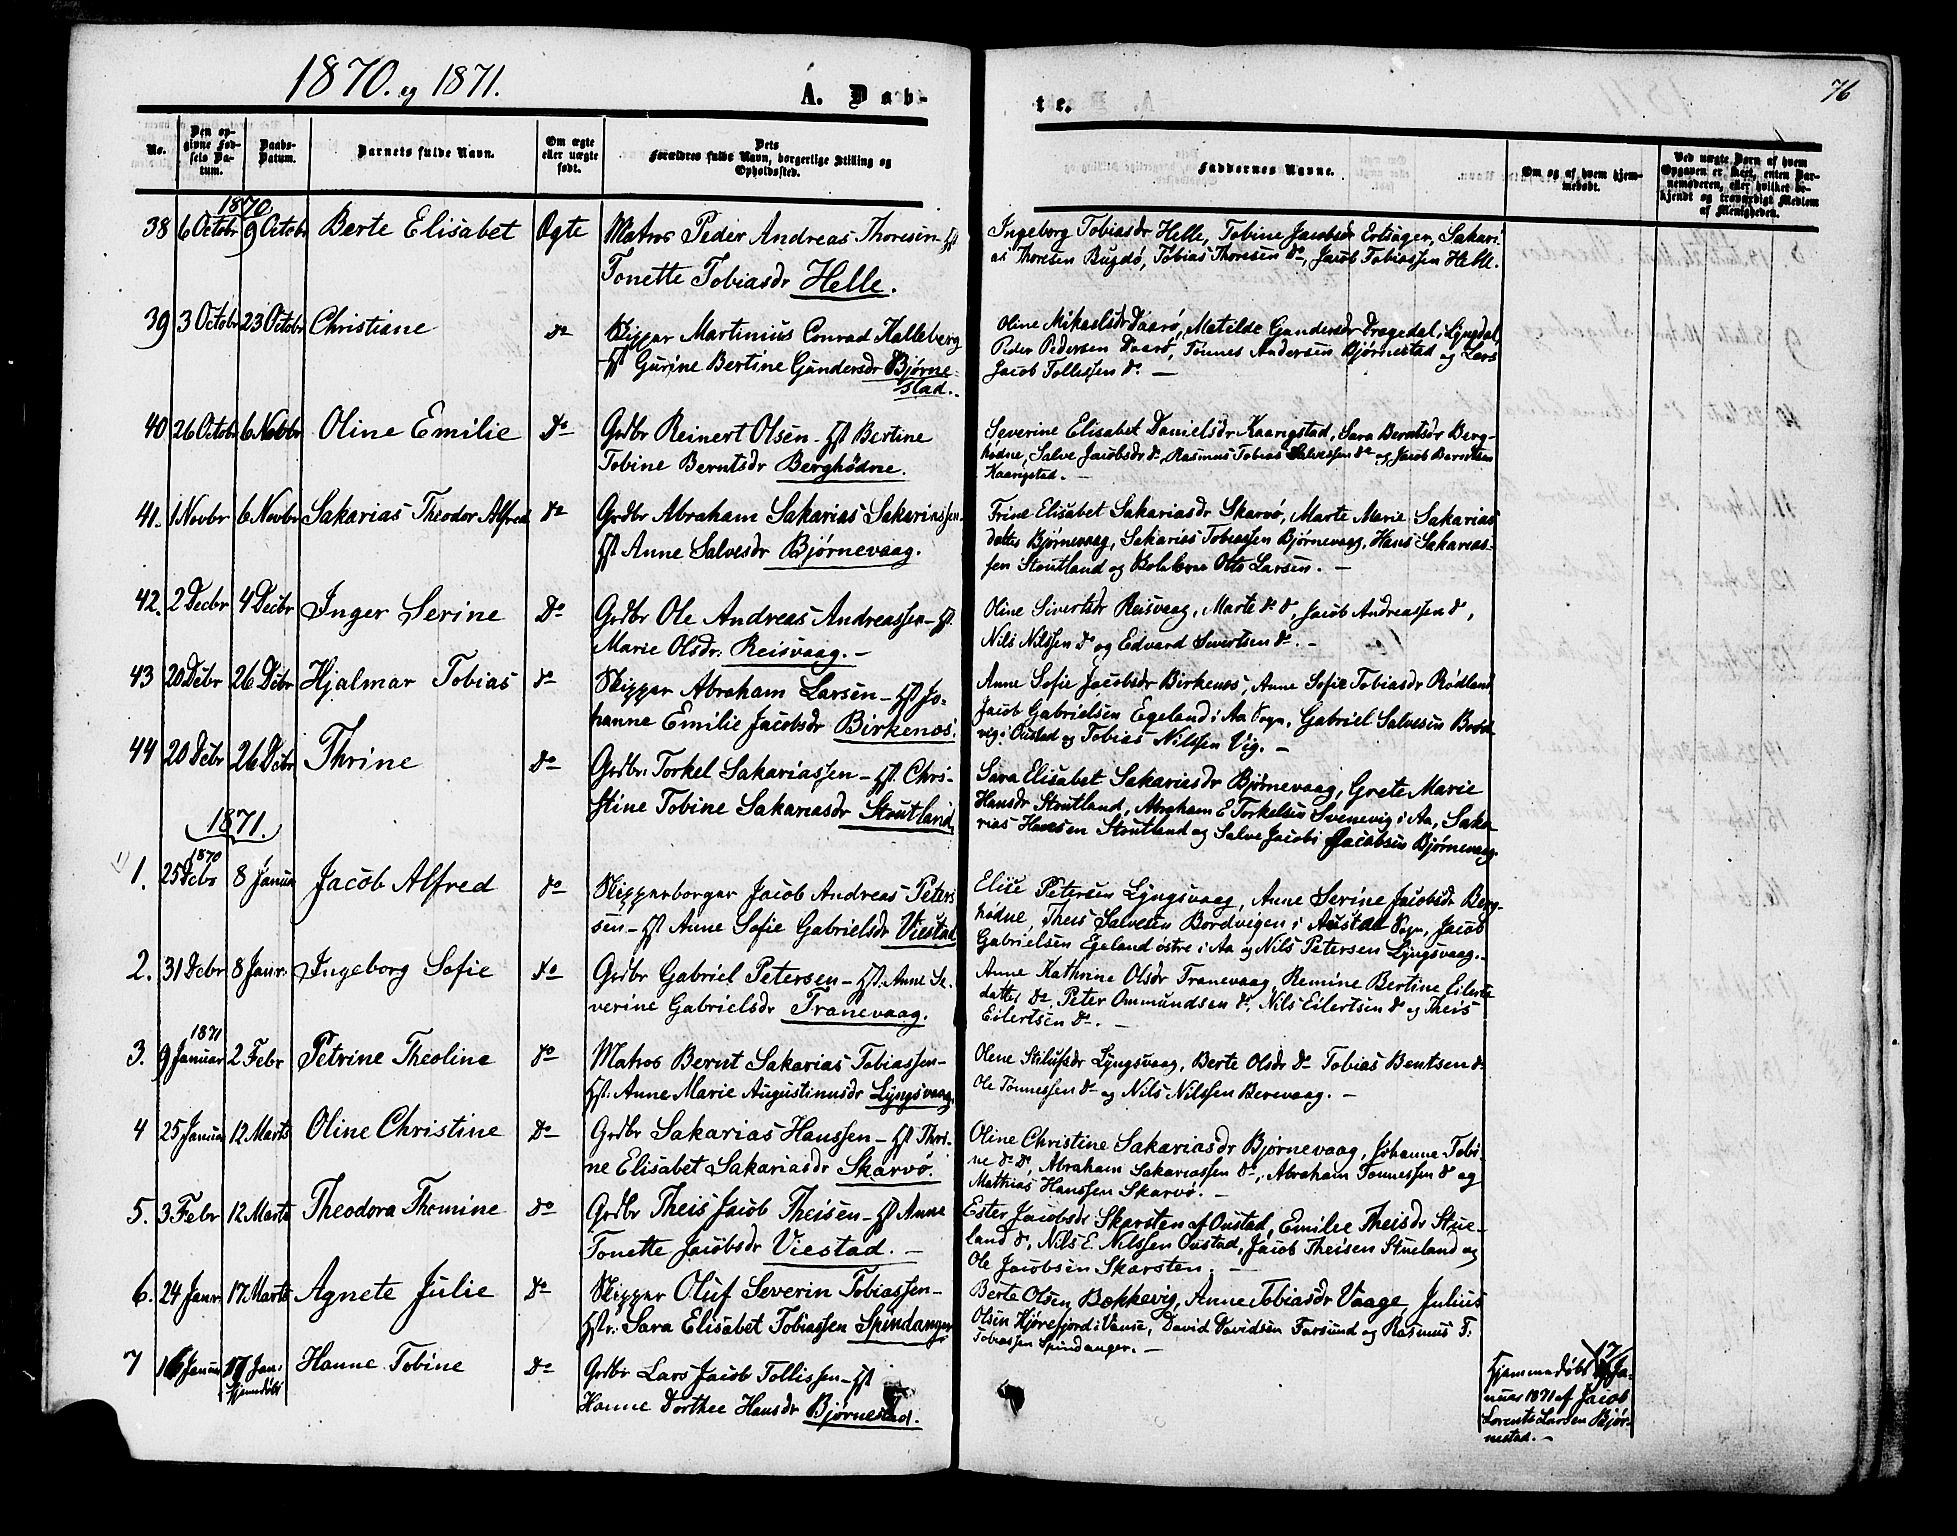 1870. og 1871.
A. Dab-
te.
76
No.
Den op-
givne Fød-
sels Da-
tum.
Daabs-
Datum.
Barnets fulde Navn.
Om ægte
eller uægte
født.
Dets
Forældres fulde Navn, borgerlige Stilling og
Opholdssted.
Faddernes Navne.
Om og af hvem hjem-
medøbt.
Ved uægte Børn af hvem
Opgaven er skeet, enten Bar-
nemoderen, eller hvilket be-
kjendt og troværdigt Medlem
af Menigheden.
1870
38 6 Octobr 9 Octobr Berte Elisabet Ægte Matros Peder Andreas Thoresen - Hst
Tonette Tobiasdr Helle.
Ingeborg Tobiasdr Helle, Tobine Jacobsdr Ertsåger, Sakari-
as Thoresen Bugdø, Tobias Thoresen do, Jacob Tobiassen Helle.
39 3 Octobr 23 Octobr Christiane do Skipper Martinius Conrad Kalleberg
- Hst Gurine Bertine Gundersdr Bjørne-
stad.
Oline Mikaelsdr Daarø, Matilde Gundersdr Dragedal i Lyngdal,
Peder Pedersen Daarø, Tønnes Andersen Bjørnestad og Lars
Jacob Tollissen do. -
40 26 Octobr 6 Novbr Oline Emilie Do Grdbr Reinert Olsen - Hst Bertine
Tobine Berntsdr Berghødne.
Severine Elisabet Danielsdr Kaarigstad, Sara Berntsdr Berg-
hødne, Salve Jacobsdr do, Rasmus Tobias Salvessen do og Jacob Berntsen
Kaarigstad. -
41. 1 Novbr 6 Novbr Sakarias Theodor Alfred do Grdbr Abraham Sakarias Sakariassen -
Hst Anne Salvesdr Bjørnevaag.
Trine Elisabet Sakariasdr Skarvø, Marte Marie Sakarias
datter Bjørnevaag, Sakarias Tobiassen Bjørnevaag, Hans Sakarias-
sen Stoutland og Otto Larsen. -
42. 2 Decbr 4 Decbr Inger Serine Do Grdbr Ole Andreas Andreassen - Hst
Marie Olsdr. Reisvaag. -
Oline Sivertsdr Reisvaag, Marte do do, Jacob Andreassen do,
Nils Nilssen do og Edvard Sivertsen do. -
43 20 Debr 26 Debr Hjalmar Tobias do Skipper Abraham Larsen - Hst Jo-
hanne Emilie Jacobsdr Birkenes.
Anne Sofie Jacobsdr Birkenes, Anne Sofie Tobiasdr Rødland
Jacob Gabrielsen Egeland i Aa Sogn, Gabriel Salvesen Bord-
vig i Oustad og Tobias Nilssen Vig. -
44 20 Debr 26 Debr Thrine do Grdbr. Torkel Sakariassen - Hst Chri-
stine Tobine Sakariasdr Stoutland
Sara Elisabet Sakariasdr Bjørnevaag, Grete Marie
Hansdr Stoutland, Abraham E Torkelsen Svenevig i Aa, Saka-
rias Hansen Stoutland og Salve Jacob Jacobsen Bjørnevaag.
1871.
1870
1. 25 Debr 8 Januar Jacob Alfred do Skipperborger Jacob Andreas Peter-
sen - Hst Anne Sofie Gabrielsdr Viestad
Elise Petersen Lyngsvaag, Anne Serine Jacobsdr Berg-
hødne, Theis Salvesen Bordvigen i Austad Sogn, Jacob
Gabrielsen Egeland østre i Aa og Nils Petersen Lyngsvaag. -
2. 31 Debr 8 Janr. Ingeborg Sofie do Grdbr Gabriel Petersen - Hst. Anne Se-
verine Gabrielsdr Tranevaag.
Anne Kathrine Olsdr Tranevaag, Remine Bertine Eilerts
datter do, Peter Ommundsen do, Nils Eilertsen do og Theis
Eilertsen do. -
1871
3. 9 Januar 2 Febr Petrine Theoline do Matros Bernt Sakarias Tobiassen -
Hst. Anne Marie Augustinusdr Lyngsvaag.
Olene Lyngsvaag, Berte Olsdr do Tobias Bentsen do
Ole Tønnessen do og Nils Nilssen Berevaag. -
4 25 Januar 12 Marts Oline Christine Do Grdbr Sakarias Hanssen - Hst Thri-
ne Elisabet Sakariasdr Skarvø.
Oline Christine Sakariasdr Bjørnevaag, Johanne Tobi-
ne do do, Abraham Sakariassen do, Abraham Tønnessen do og
Mathias Hanssen Skarvø. -
5. 3 Febr 12 Marts Theodora Thomine do Grdbr Theis Jacob Theisen - Hst Anne
Tonette Jacobsdr Viestad. -
Ester Jacobsdr Skarsten af Oustad, Emilie Theisdr Stue-
land do, Nils E. Nilssen Oustad, Jacob Theisen Stueland og
Ole Jacobsen Skarsten. -
6. 24 Janr 17 Marts Agnete Julie Do Skipper Oluf Severin Tobiassen -
Hstr. Sara Elisabet Tobiassen Spindanger
Berte Olsen Bækkevig, Anne Tobiasdr Vaage, Julius
Olsen Kjørefjord i Vanse, David Davidsen Farsund og Rasmus T.
Tobiassen Spindanger. -
7 16 Januar 17 Jan. Hanne Tobine Do Grdbr Lars Jacob Tollissen - Hst
hjemdøbt
Hanne Dorthee Hansdr Bjørnestad.
17/
Hjemmedøbt Ja-
nuar 1871 af Jacob
Lorents Larsen Bjør-
nestad. -